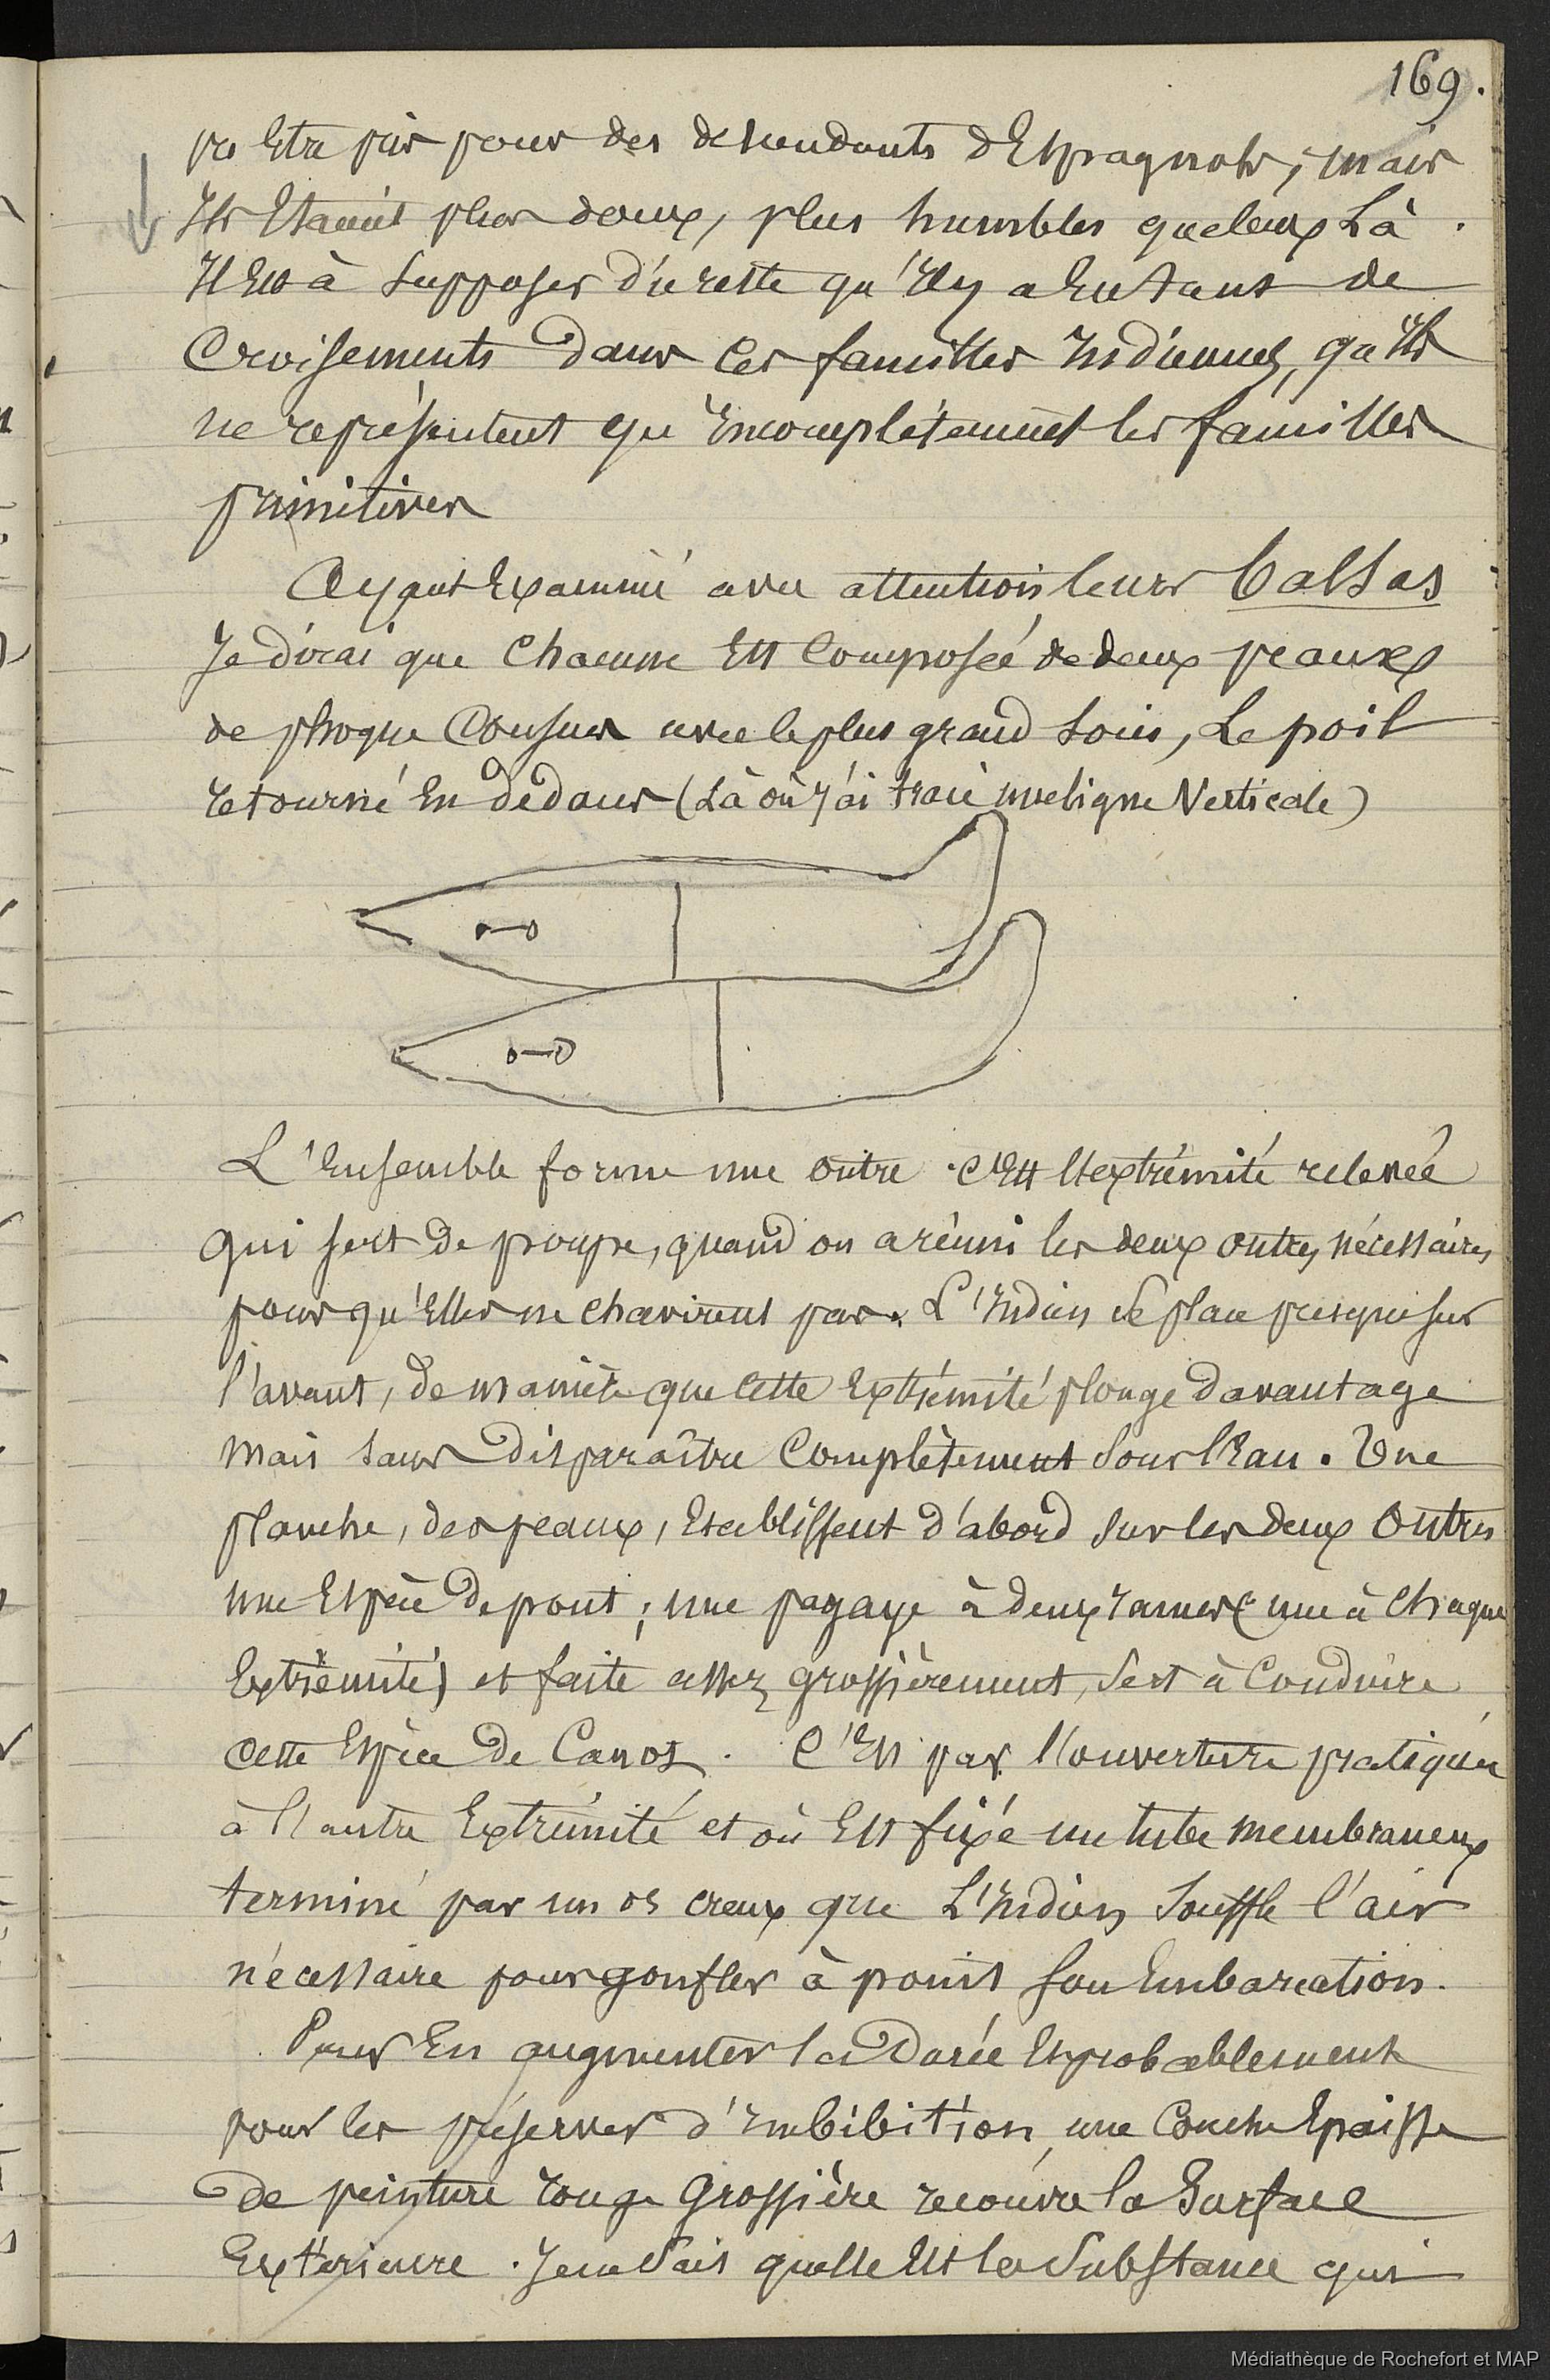 169.
pu être pris pour des descendants d'Espagnols, mais
Ils Etaient plus doux, plus humbles que ceux là.
Il est à supposer du reste qu'il y a eu tant de
Croisements dans ces familles Indiennes, qu'ils
ne représentent qu'incomplétement les familles
primitives
Ayant Examiné avec attention leurs balsas
Je dirai que Chacune Est Composée de deux peaux
de phoque Cousues avec le plus grand soin, Le poil
retourné En dedans (Là où j'ai tracé une ligne Verticale)
L'Ensemble forme une outre. C'Est l'extrémité relevée
qui sert de poupe, quand on a réuni les deux outres nécessaires
pour qu'Elles ne chavirent pas. L'Indien se place presque sur
l'avant, de manière que cette Extrémité plonge davantage
mais sans disparaître Complètement sous l'Eau. Une
planche, des peaux, Etablissent d'abord sur les deux outres
une Espèce de pont ; une pagaye à deux rames (une à chaque
Extrémité) et faite assez grossièrement, sert à Conduire
cette Espèce de Canot. C'Est par l'ouverture pratiquée
à l'autre Extrémité et où Est fixé un tube membraneux
terminé par un os creux que L'Indien souffle l'air
nécessaire pour gonfler à point son Embarcation.
Pour En augmenter la Durée Et probablement
pour les préserver d'imbibition, une Couche Epaisse
de peinture rouge Grossière recouvre la Surface
Extérieure. Je ne sais quelle Est la Substance qui
Médiathèque de Rochefort et MAP